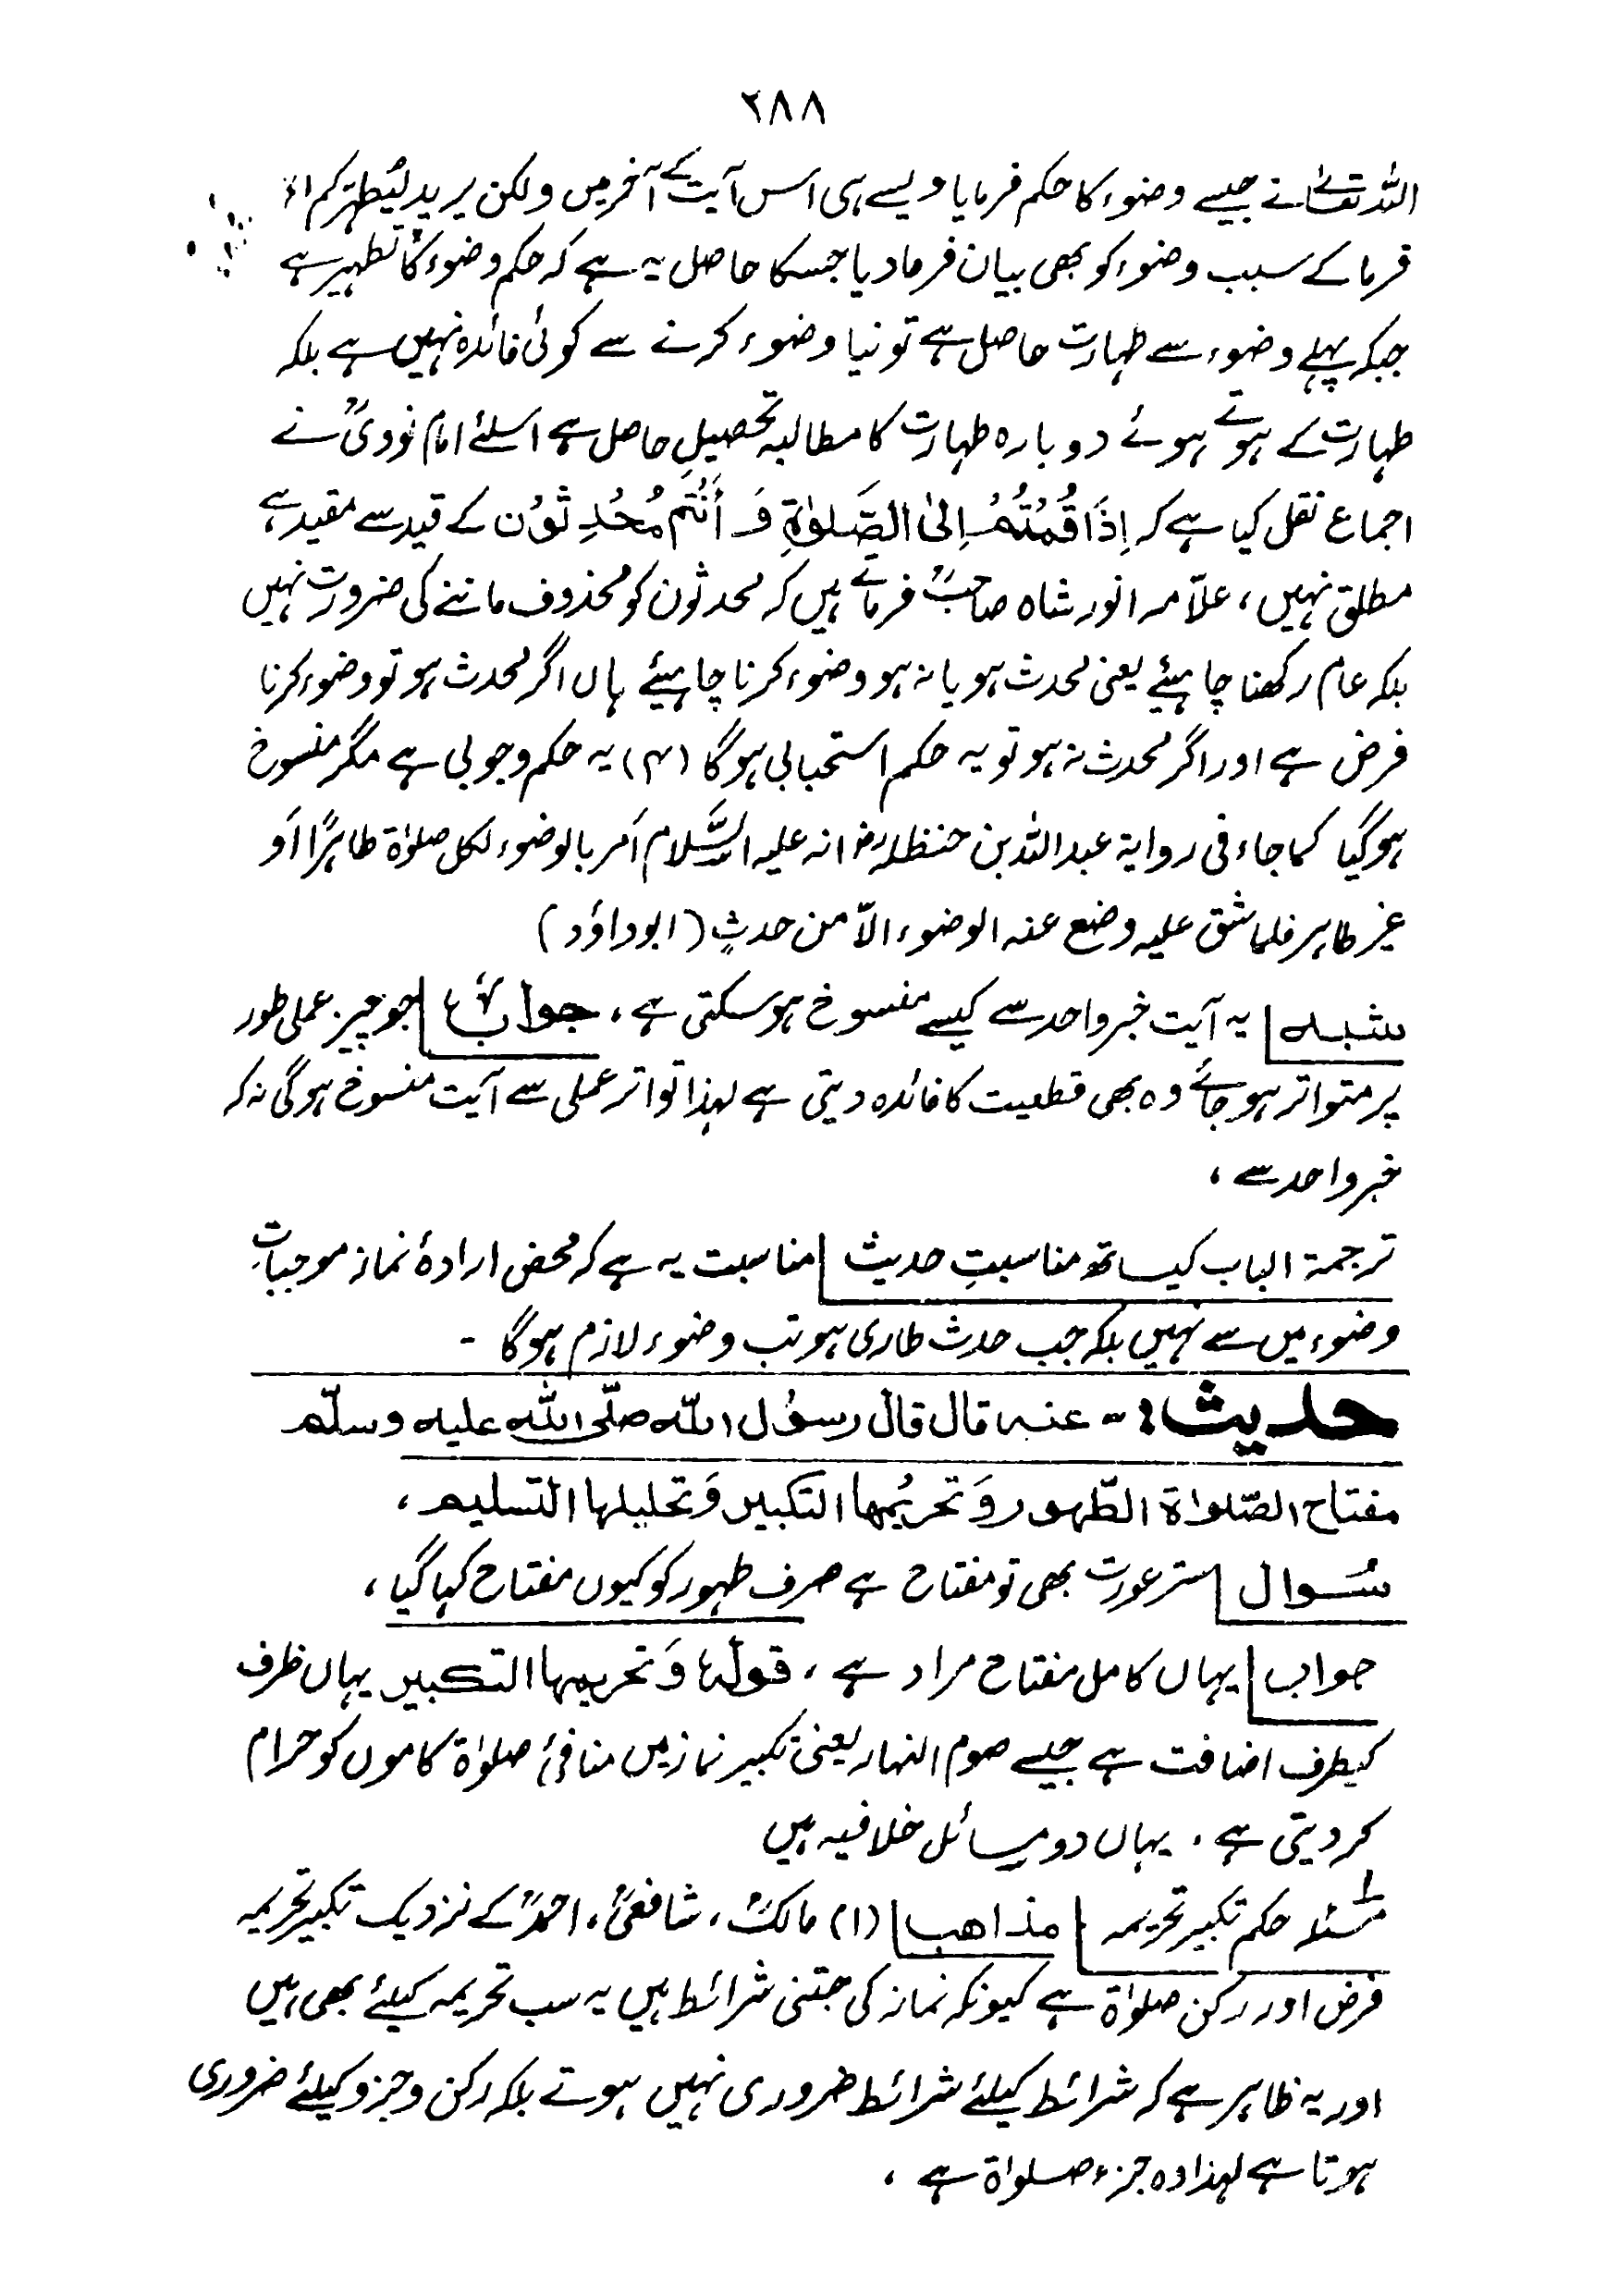 ۲۸۸
اللہ تعالےٰ نے جیسے وضوء کا حکم فرمایا ویسے ہی اس آیت کے آخر میں ولکن یرید لیُطہّرکم اھ
فرما کے سبب وضوء کو بھی بیان فرمادیا جسکا حاصل یہ ہے کہ حکم وضوء کا تطہیر ہے
جبکہ پہلے وضوء سے طہارت حاصل ہے تو نیا وضوء کرنے سے کوئی فائدہ نہیں ہے بلکہ
طہارت کے ہوتے ہوئے دوبارہ طہارت کا مطالبہ تحصیلِ حاصل ہے اسلئے امام نوویؒ نے
اجماع نقل کیا ہے کہ اِذَا قُمْتُمْ اِلیٰ الصَّلوٰۃِ وَ أَنْتُم مُحْدِثُوْن کے قید سے مقید ہے
مطلق نہیں، علاّمہ انور شاہ صاحبؒ فرماتے ہیں کہ محدثون کو محذوف ماننے کی ضرورت نہیں
بلکہ عام رکھنا چاہیئے یعنی محدث ہو یا نہ ہو وضوء کرنا چاہیئے ہاں اگر محدث ہو تو وضوء کرنا
فرض ہے اور اگر محدث نہ ہو تو یہ حکم استحبابی ہوگا (۴) یہ حکم وجوبی ہے مگر منسوخ
ہوگیا کما جاء فی روایۃ عبداللہ بن حنظلہؓ انہ علیہ السَّلام اَمر بالوضوء لکل صلوٰۃ طاہرًا اَو
غیر طاہر فلما شق علیہ وضع عنہ الوضوء الاّ من حدثٍ (ابوداؤد)
شبہ یہ آیت خبر واحد سے کیسے منسوخ ہوسکتی ہے، جواب جو چیز عملی طور
پر متواتر ہوجائے وہ بھی قطعیت کا فائدہ دیتی ہے لہذا تواتر عملی سے آیت منسوخ ہوگی نہ کہ
خبر واحد سے،
ترجمۃ الباب کیساتھ مناسبتِ حدیث مناسبت یہ ہے کہ محض ارادۂ نماز موجباتِ
وضوء میں سے نہیں بلکہ جب حدث طاری ہو تب وضوء لازم ہوگا -
حدیث:- عنہ قال قال رسوُل اللہ صلّی اللہ علیہ وسلّم
مفتاح الصّلوٰۃ الطّہور وَ تحریمُہا التکبیر وَ تحلیلہا التسلیم،
سُوال ستر عورت بھی تو مفتاح ہے صرف طہور کو کیوں مفتاح کہا گیا،
جواب یہاں کامل مفتاح مراد ہے، قولہٗ وَ تحریمہا التکبیر یہاں ظرف
کیطرف اضافت ہے جیسے صوم النہار یعنی تکبیر نماز میں منافیٔ صلوٰۃ کاموں کو حرام
کردیتی ہے، یہاں دو مسائل خلافیہ ہیں
مسئلہ ۱ حکم تکبیر تحریمہ مذاھب (۱) مالکؒ، شافعیؒ، احمدؒ کے نزدیک تکبیر تحریمہ
فرض اور رکن صلوٰۃ ہے کیونکہ نماز کی جتنی شرائط ہیں یہ سب تحریمہ کیلئے بھی ہیں
اور یہ ظاہر ہے کہ شرائط کیلئے شرائط ضروری نہیں ہوتے بلکہ رکن و جزو کیلئے ضروری
ہوتا ہے لہذا وہ جزء صلوٰۃ ہے،